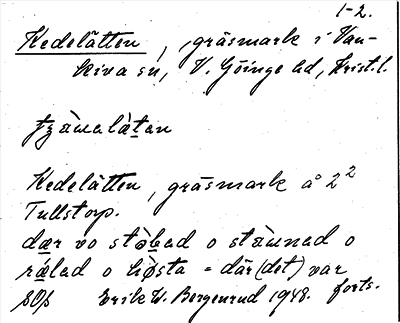 1-2.
Kedelätten, gräsmark i Van-
kiva sn, V. Göinge hd, Krist.l.
Kedelätten, gräsmark å 2²
Tullstorp.
dær vo stòbad o stàunad o
rǽlad o hǿsta = där (det) var
Erik W. Bergenrud 1948. forts.